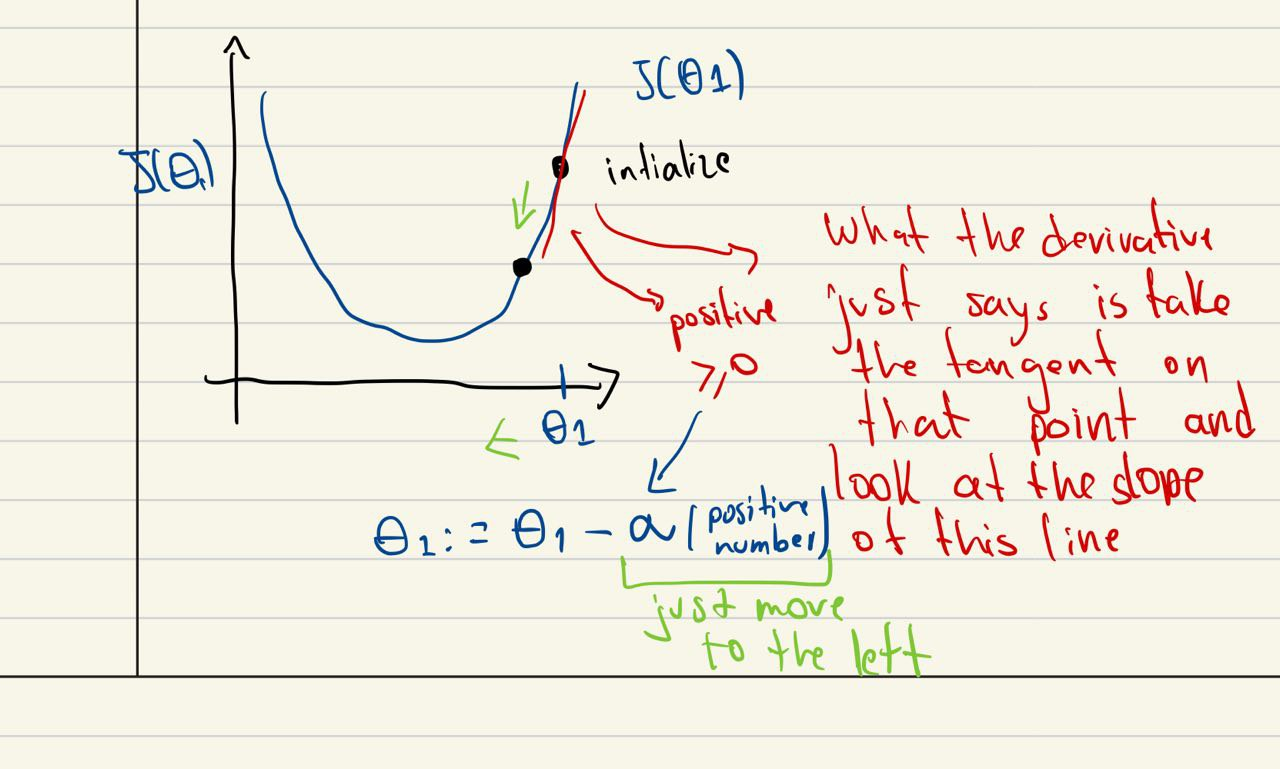 J(θ1)
J(θ1)
intialize
What the derivative
just says is take
the tangent on
that point and
look at the slope
of this line
positive
≥0
θ1
θ1 := θ1 - α (positive
number)
just move
to the left